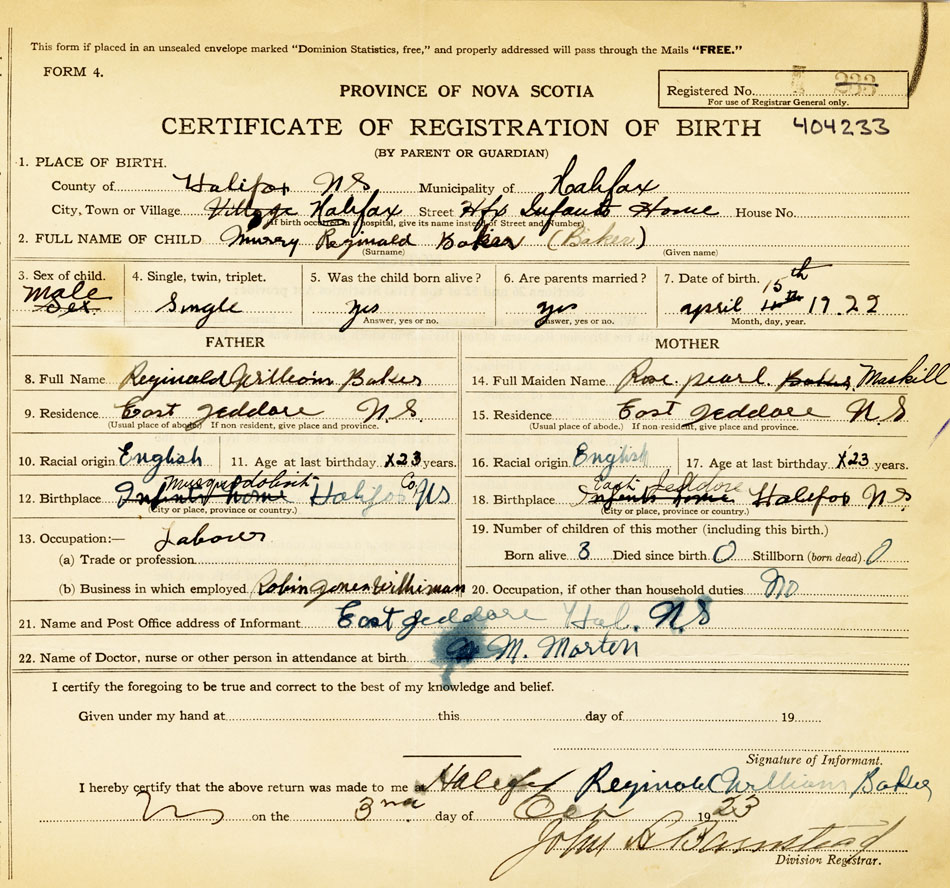 This form if placed in an unsealed envelope marked "Dominion Statistics, free," and properly addressed will pass through the Mails "FREE."
FORM 4.
PROVINCE OF NOVA SCOTIA
Registered No. 233
For use of Registrar General only.
CERTIFICATE OF REGISTRATION OF BIRTH 404233
(BY PARENT OR GUARDIAN)
1. PLACE OF BIRTH.
County of Halifax NS Municipality of Halifax
City, Town or Village Village Halifax Street Hfx Infants Home House No.
(If birth occurred in hospital, give its name instead of Street and Number)
2. FULL NAME OF CHILD Murry Reginald Baker (Baker)
(Surname) (Given name)
3. Sex of child. 4. Single, twin, triplet. 5. Was the child born alive? 6. Are parents married? 7. Date of birth. 15th
Male Sex Single Yes yes april 19.22
Answer, yes or no. Answer, yes or no. Month, day, year.
FATHER MOTHER
8. Full Name Reginald William Baker 14. Full Maiden Name Rose pearl Baker Maskill
9. Residence East Jeddore N.S 15. Residence East Jeddore N.S
(Usual place of abode.) If non-resident, give place and province. (Usual place of abode.) If non-resident, give place and province.
10. Racial origin English 11. Age at last birthday X23 years. 16. Racial origin English 17. Age at last birthday X23 years.
Musquodoboit Co East Jeddore
12. Birthplace Infants home Halifax NS 18. Birthplace Infants home Halifax NS
(City or place, province or country.) (City or place, province or country.)
13. Occupation:— Labourer 19. Number of children of this mother (including this birth.)
(a) Trade or profession Born alive 3 Died since birth 0 Stillborn (born dead) 0
(b) Business in which employed Robin Jones Whitman 20. Occupation, if other than household duties No
21. Name and Post Office address of Informant East Jeddore Hal. N.S
22. Name of Doctor, nurse or other person in attendance at birth M. Morton
I certify the foregoing to be true and correct to the best of my knowledge and belief.
Given under my hand at this day of 19
Signature of Informant.
I hereby certify that the above return was made to me at Halifax Reginald William Baker
on the 3rd day of 1923
John A Barnstead
Division Registrar.